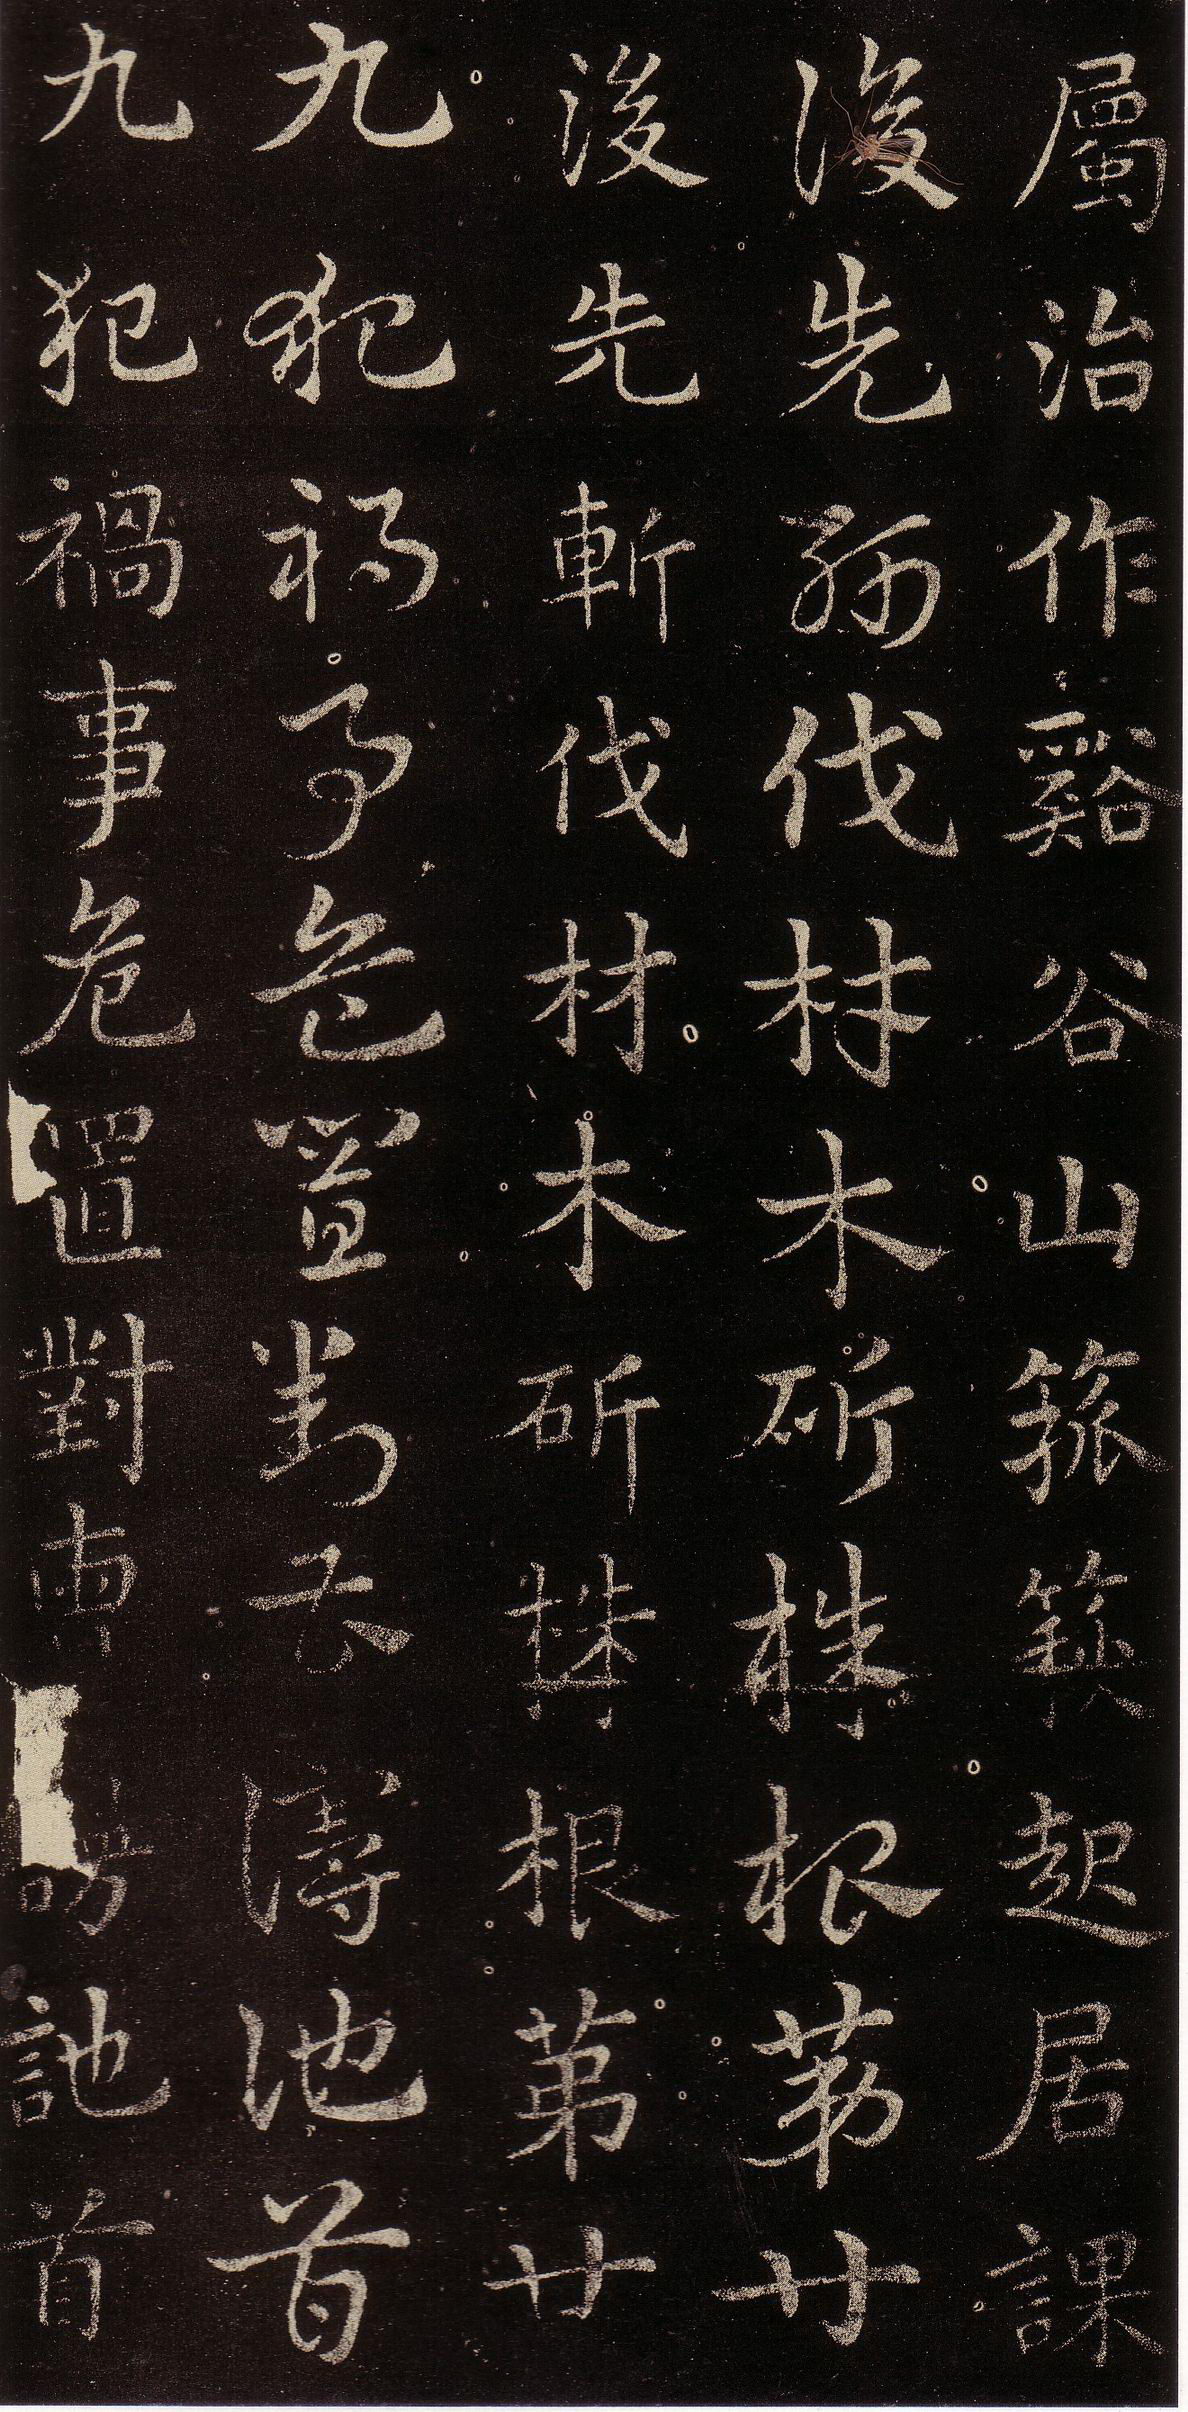 屬治作谿谷山箛簇起居課
後先斬伐材木斫株根第廿
後先斬伐材木斫株根第廿
九犯禍事危置對曹訑首
九犯禍事危置對曹訑首